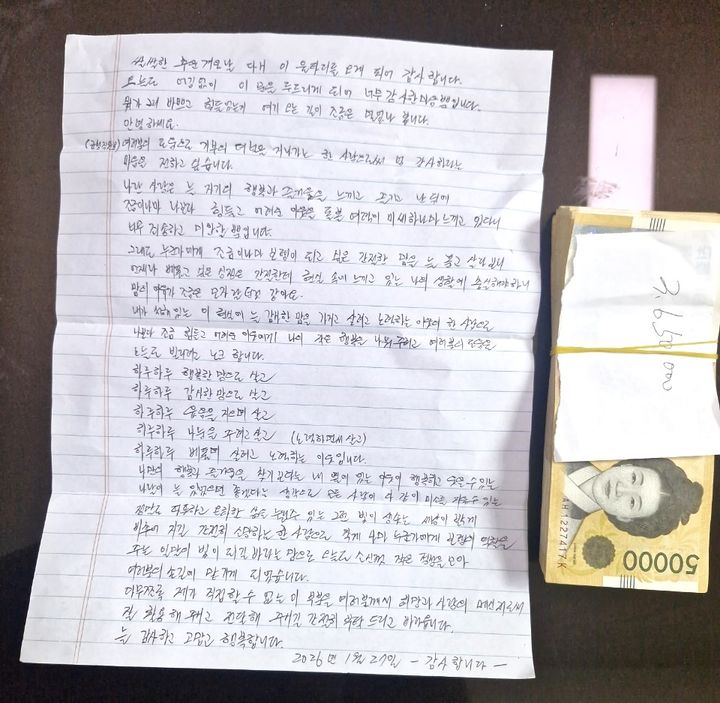 쌀쌀한 추운 겨울날 다시 이 울타리를 오게 되어 감사합니다.
오늘도 어김없이 이 문을 두드리게 되어 너무 감사한 마음뿐입니다.
뭐가 그리 바쁘고 힘들었는지 여기 오는 길이 조금은 멀었나 봅니다.
안녕하세요.
여러분의 도움으로 기부의 나눔을 지나가는 한 사람으로써 넘 감사하다는
마음을 전하고 싶습니다.
나란 사람은 늘 자기의 행복과 즐거움을 느끼고 즐기고 난 뒤에
조금이나마 나보다 힘들고 어려운 이웃을 돌볼 여력이 미세하나마 느끼고 있다니
너무 죄송하고 미안할 뿐입니다.
그래도 누군가에게 조금이나마 보탬이 되고 싶은 간절한 맘을 늘 품고 살다보니
언제나 베풀고 싶은 심정은 간절한데 현실 속에 느끼고 있는 나의 생활에 충실해야 하니
맘의 여유가 조금은 모자란 것 같아요.
내가 처해 있는 이 현실에 늘 감사한 맘을 가지고 살려고 노력하는 이웃의 한 사람으로
나보다 조금 힘들고 어려운 이웃에게 나의 작은 행복을 나눠주려고 여러분의
오늘도 노크 합니다.
하루하루 행복한 맘으로 살고
하루하루 감사한 맘으로 살고
하루하루 웃음을 지으며 살고
하루하루 나눔을 주려고 살고 (노력하면서 살고)
하루하루 베풀며 살려고 노력하는 이웃입니다.
나만의 행복과 즐거움을 찾기보다는 내 옆에 있는 이웃이 행복하고 웃을 수 있는
나날이 늘 있었으면 좋겠다는 생각으로 모든 사람이 다 같이 미소를 지을 수 있는
따뜻하고 빛이 샘솟는 세상이 되길
바라며 지금 간절히 소망하는 한 사람으로 적게나마 누군가에게 역할을
주는 인간의 빛이 되길 바라는 맘으로 오늘도 소신껏 작은 정성을 모아
여러분의 손길에 맡기게 되었습니다.
아무쪼록 제가 직접 할 수 없는 이 몫을 여러분께서 희망과 사랑의 메신저로써
잘 활용해 주시고 전달해 주시길 간절히 부탁드리고 바라옵니다.
늘 감사하고 고맙고 행복합니다.
2026년 1월 27일 - 감사합니다 -
AH1227417K
50000